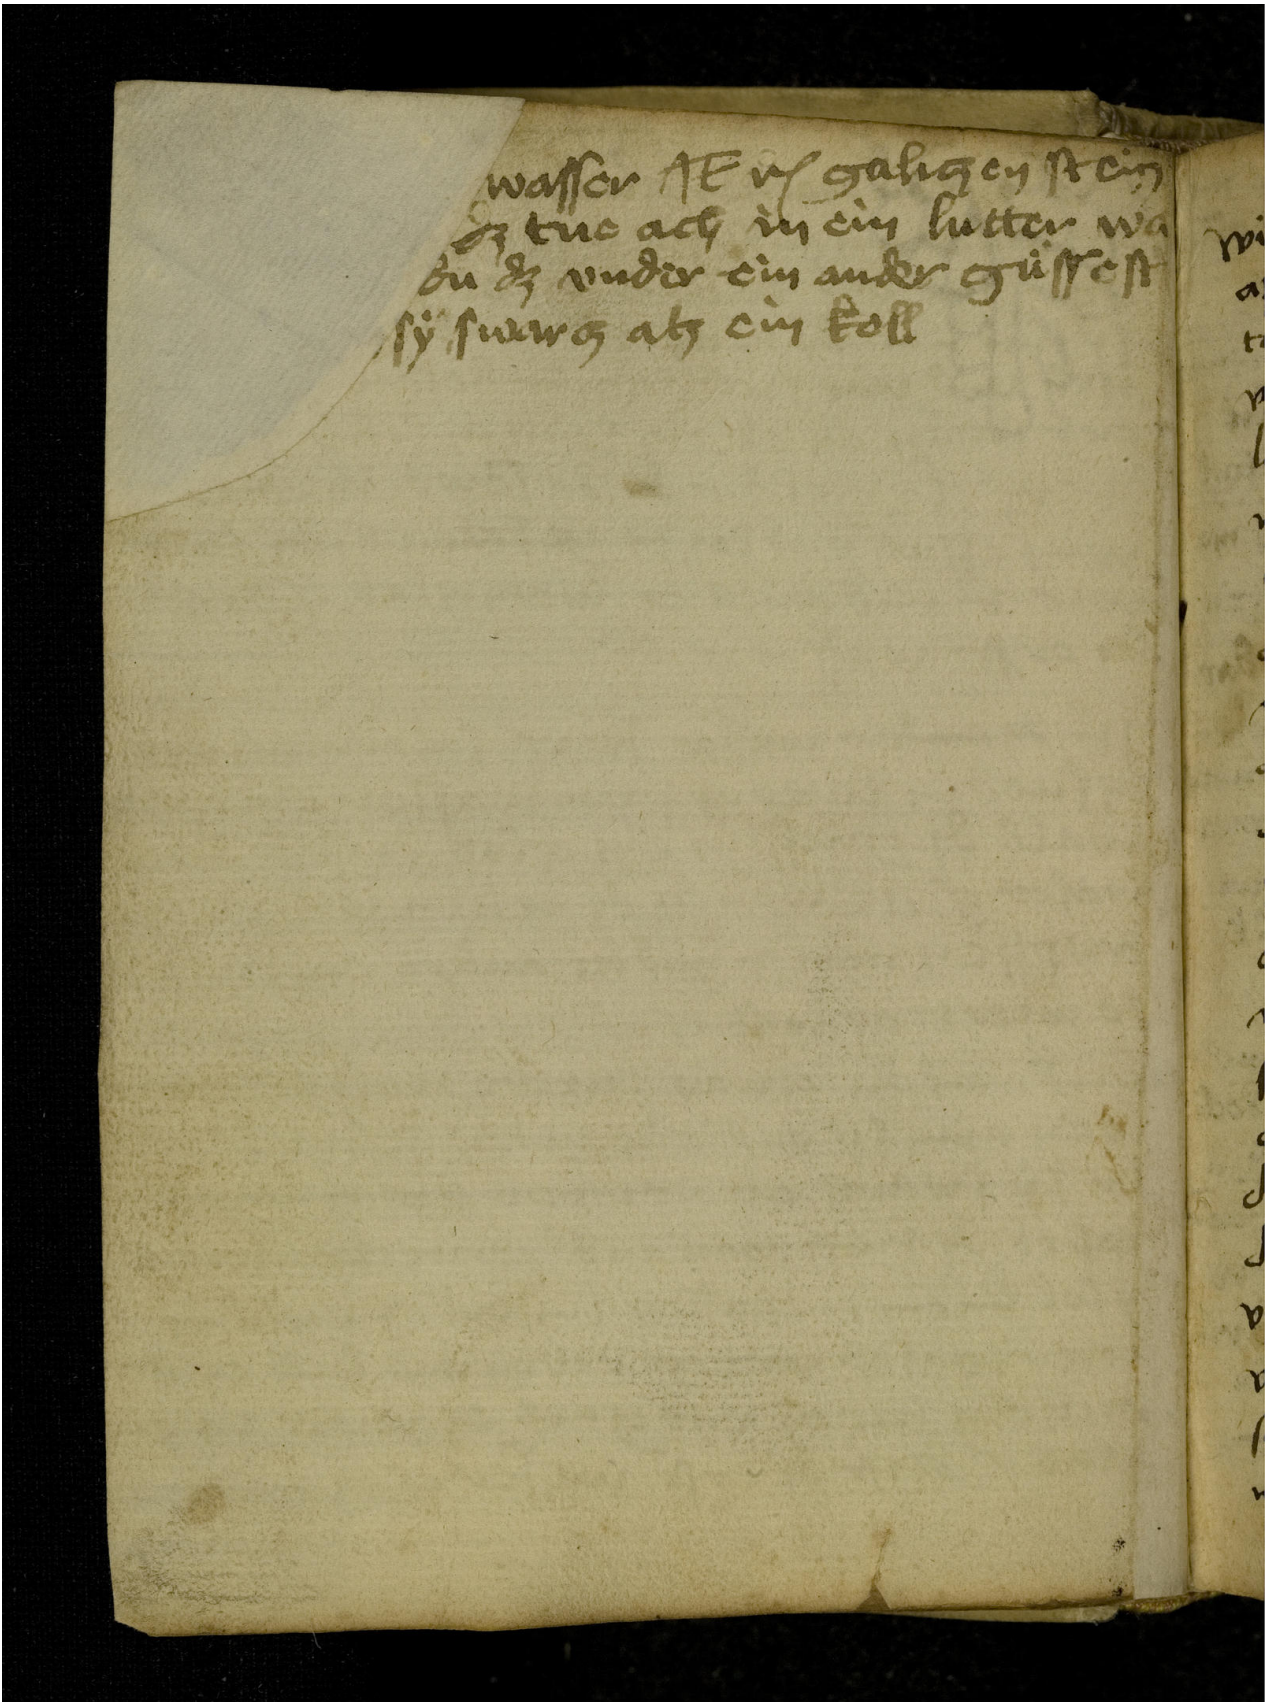 wasser galiczen stein
dz tue ach in ein lutter wa
du dz vnder ein ander güssest
sÿ swarcz alz ein koll